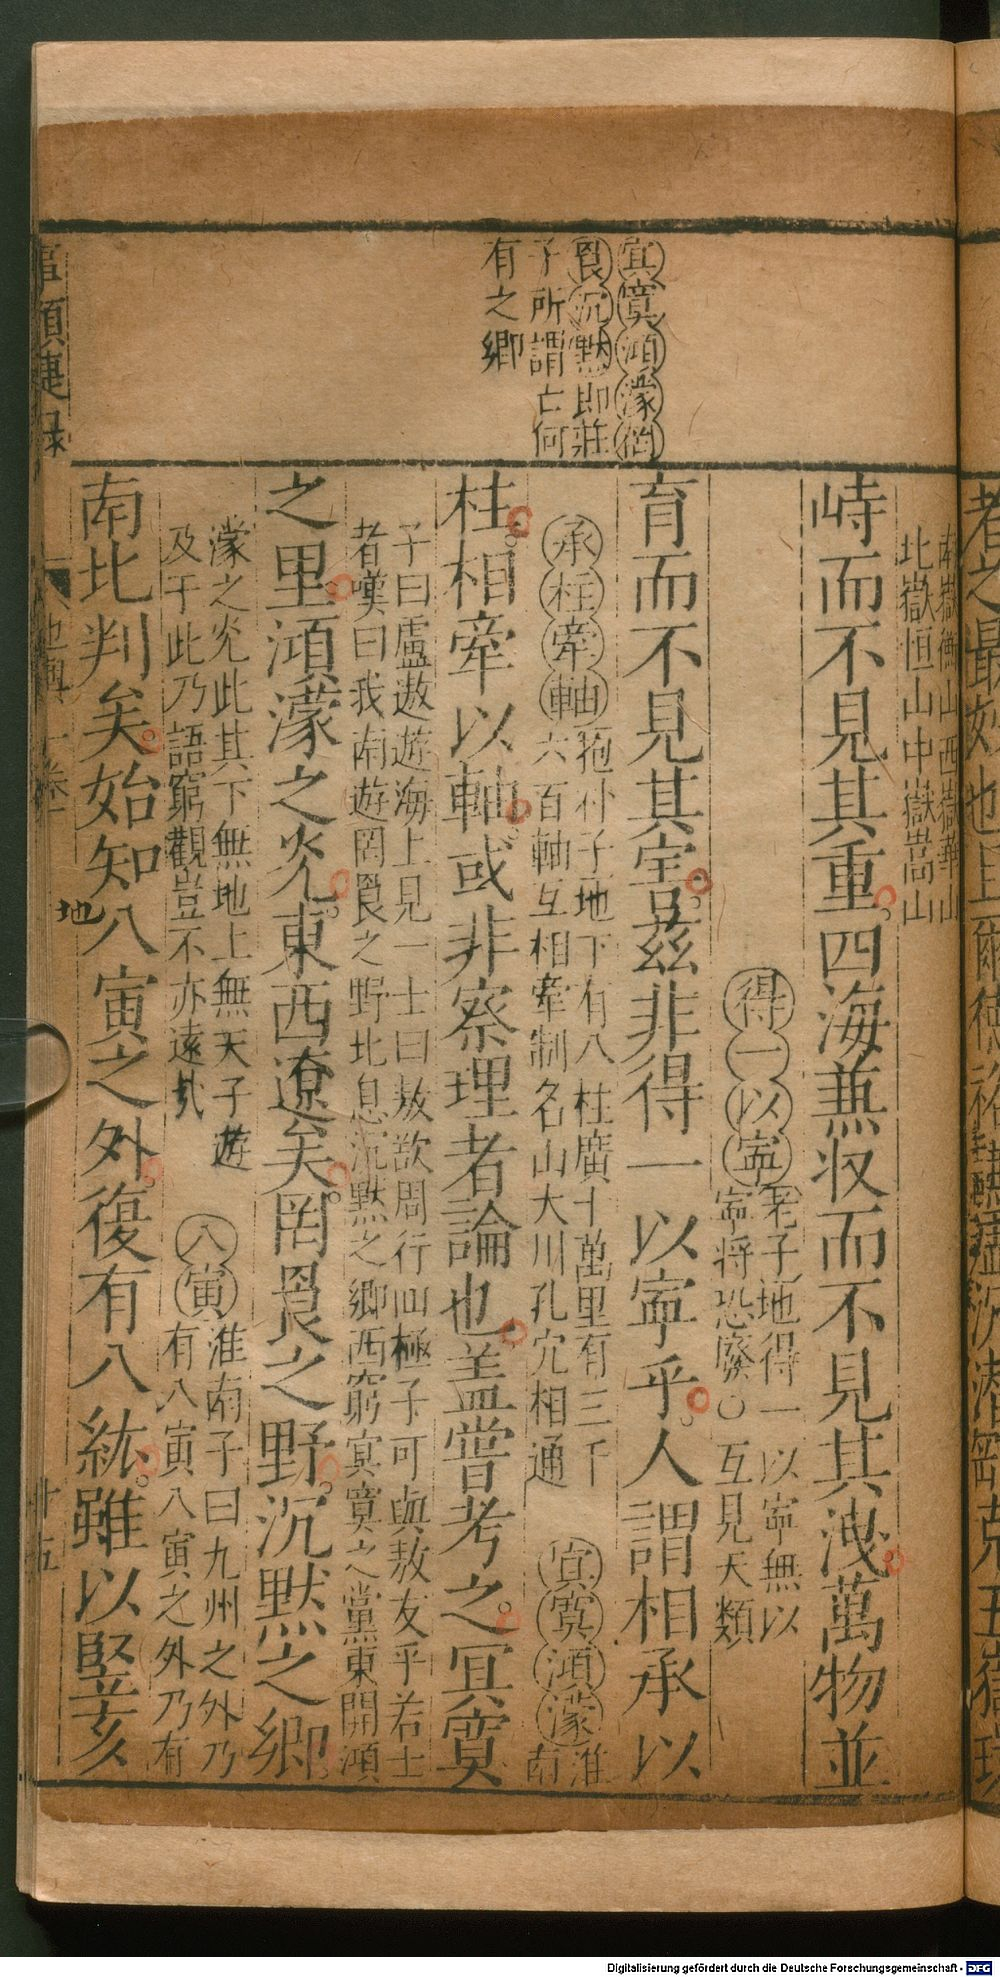 冝寞澒濛罔
㝗沉黙即莊
子所謂亡何
有之郷
南嶽衡山西嶽華山
北嶽恒山中嶽嵩山
峙而不見其重四海兼収而不見其洩萬物並
得一以寍老子地得一以寍無以
寍将恐廢○互見天類
育而不見其害兹非得一以寍乎人謂相承以
承柱牽軸抱朴子地下有八柱廣十萬里有三千
六百軸互相牽制名山大川孔穴相通
冝寞澒濛淮
南
柱相牽以軸或非察理者論也盖甞考之冝寞
子曰盧遨遊海上見一士曰敖欲周行四極子可與敖友乎若士
者嘆曰我南遊罔㝗之野北息沉黙之郷西窮㝠寞之黨東開澒
之里澒濛之光東西遼矣罔㝗之野沉黙之郷
濛之光此其下無地上無天子遊
及于此乃語窮觀豈不亦遠哉
八寅淮南子曰九州之外乃
有八寅八寅之外乃有
南北判矣始知八寅之外復有八紘雖以竪亥
事類捷録
地
十五
者之最妙也且爾德
五嶽
Digitalisierung gefördert durch die Deutsche Forschungsgemeinschaft - DFG